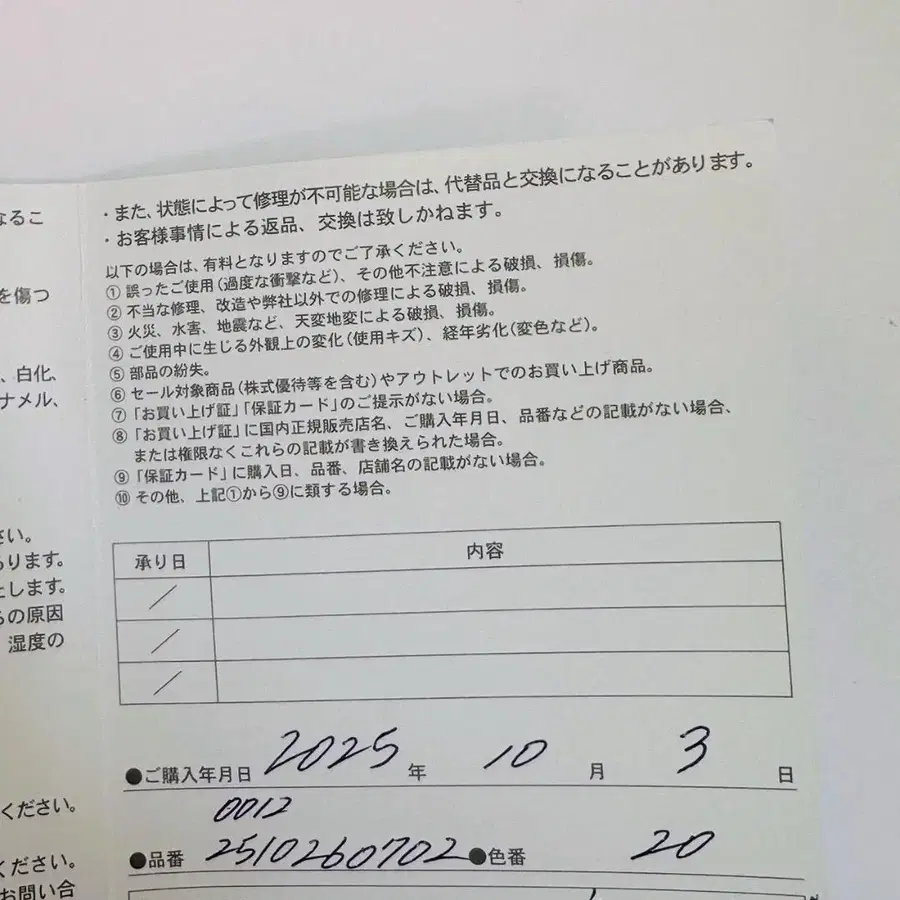 なるこ
を傷つ
、白化、
ナメル、
さい。
ります。
たします。
の原因
湿度の
ください。
ください。
お問い合
・また、状態によって修理が不可能な場合は、代替品と交換になることがあります。
・お客様事情による返品、交換は致しかねます。
以下の場合は、有料となりますのでご了承ください。
① 誤ったご使用(過度な衝撃など)、その他不注意による破損、損傷。
② 不当な修理、改造や弊社以外での修理による破損、損傷。
③ 火災、水害、地震など、天変地変による破損、損傷。
④ ご使用中に生じる外観上の変化(使用キズ)、経年劣化(変色など)。
⑤ 部品の紛失。
⑥ セール対象商品(株式優待等を含む)やアウトレットでのお買い上げ商品。
⑦「お買い上げ証」「保証カード」のご提示がない場合。
⑧「お買い上げ証」に国内正規販売店名、ご購入年月日、品番などの記載がない場合、
または権限なくこれらの記載が書き換えられた場合。
⑨「保証カード」に購入日、品番、店舗名の記載がない場合。
⑩ その他、上記①から⑨に類する場合。
承り日 内容
/
/
/
●ご購入年月日 2025 年 10 月 3 日
0012
●品番 2510260702 ●色番 20